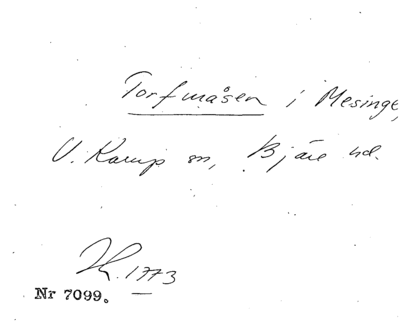 Torfmåsen i Mesinge,
V. Karup sn, Bjäre hd.
1773
Nr 7099.